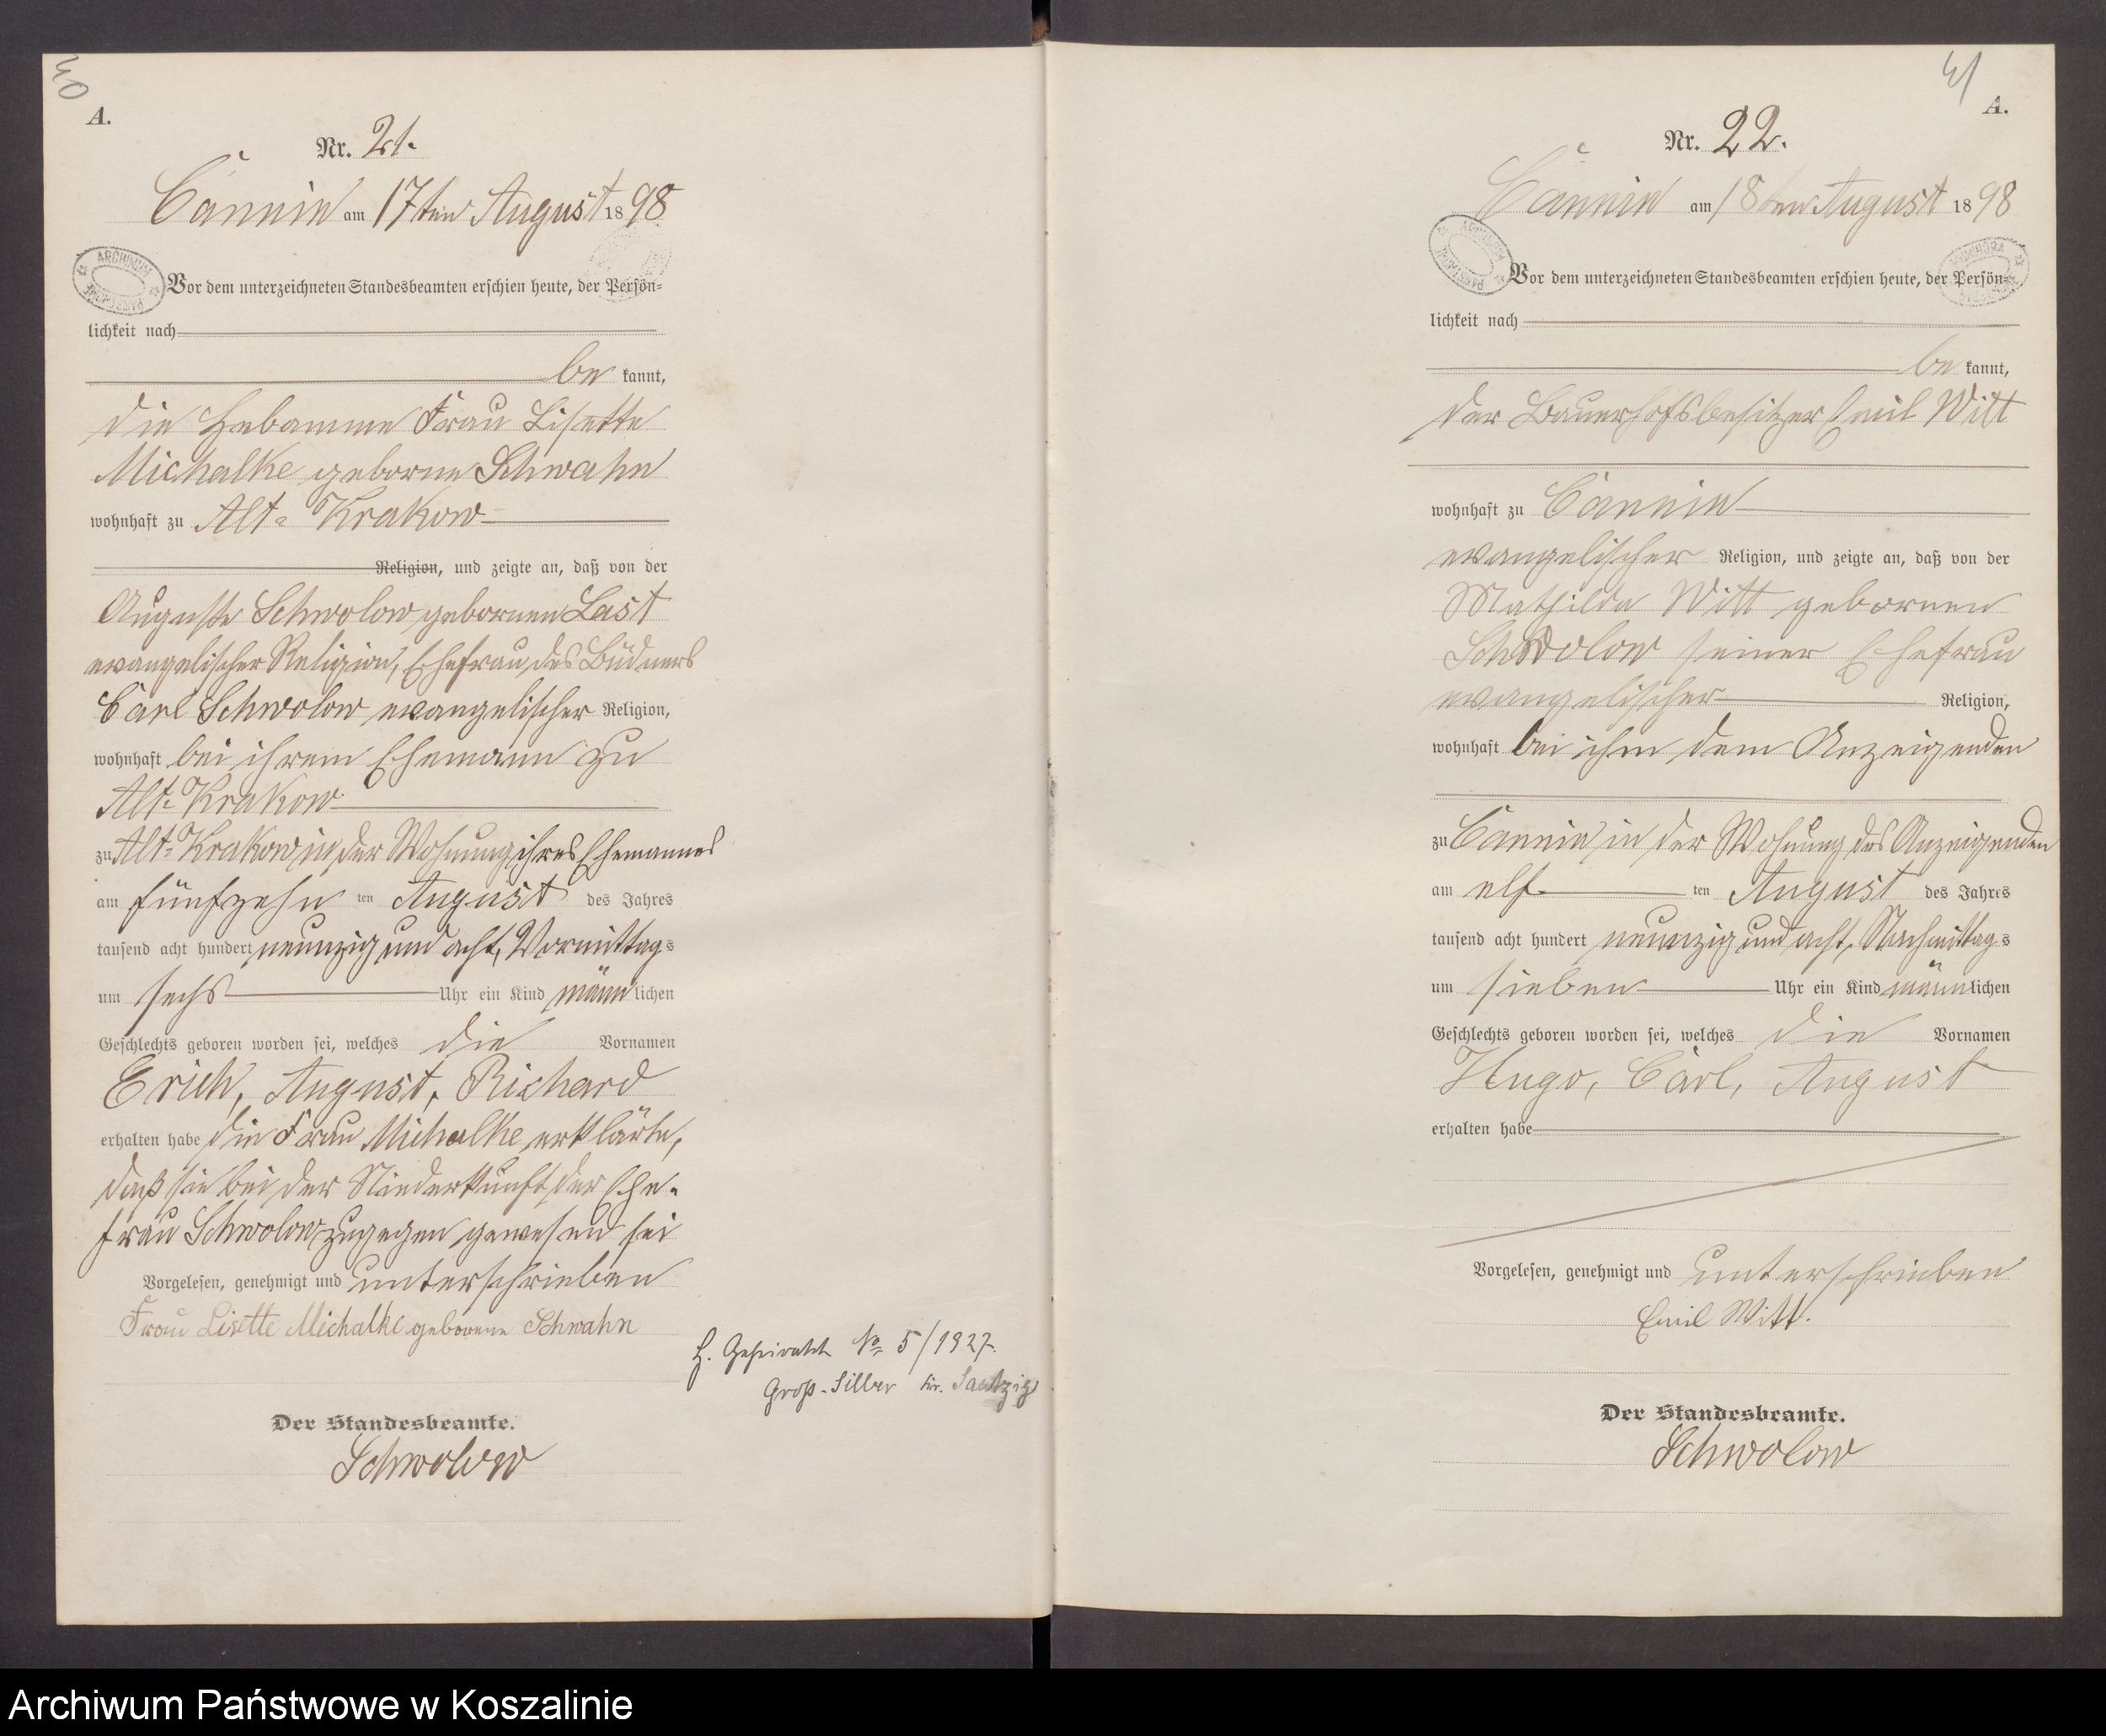 40
A.
Nr. 21.
Cannin am 17ten August 1898
Vor dem unterzeichneten Standesbeamten erschien heute, der Persön-
lichkeit nach
be kannt,
die Hebamme Frau Lisette
Michalke geborne Schwahn
wohnhaft zu Alt-Krakow
Religion, und zeigte an, daß von der
Auguste Schwolow gebornen Last
evangelischer Religion, Ehefrau des Büdners
Carl Schwolow evangelischer Religion,
wohnhaft bei ihrem Ehemann zu
Alt-Krakow
zu Alt-Krakow in der Wohnung ihres Ehemannes
am fünfzehn ten August des Jahres
tausend acht hundert neunzig und acht, Vormittags
um sechs Uhr ein Kind männlichen
Geschlechts geboren worden sei, welches die Vornamen
Erich, August, Richard
erhalten habe die Frau Michalke erklärte,
daß sie bei der Niederkunft der Ehe-
frau Schwolow zugegen gewesen sei
Vorgelesen, genehmigt und unterschrieben
Frau Lisette Michalke geborene Schwahn
Der Standesbeamte.
Schwolow
Geheiratet No 5/1927.
Groß-Silber Saatzig
41
A.
Nr. 22.
Cannin am 18ten August 1898
Vor dem unterzeichneten Standesbeamten erschien heute, der Persön-
lichkeit nach
be kannt,
der Bauerhofsbesitzer Emil Witt
wohnhaft zu Cannin
evangelischer Religion, und zeigte an, daß von der
Mathilde Witt gebornen
Schwolow seiner Ehefrau
evangelischer Religion,
wohnhaft bei ihm dem Anzeigenden
zu Cannin in der Wohnung des Anzeigenden
am elf ten August des Jahres
tausend acht hundert neunzig und acht, Nachmittags
um sieben Uhr ein Kind männlichen
Geschlechts geboren worden sei, welches die Vornamen
Hugo, Carl, August
erhalten habe
Vorgelesen, genehmigt und unterschrieben
Emil Witt.
Der Standesbeamte.
Schwolow
Archiwum Państwowe w Koszalinie